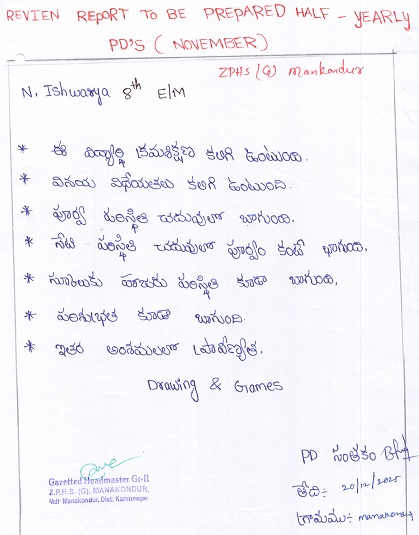 REVIEN REPORT TO BE PREPARED HALF - YEARLY
PD'S ( NOVEMBER )
ZPHS (G) Mankondur
N. Ishwarya 8th E/M
* ఈ విద్యార్థి క్రమశిక్షణ కలిగి ఉంటుంది.
* వినయ విధేయతలు కలిగి ఉంటుంది.
* పూర్వ పరిస్థితి చదువులో బాగుంది.
* నేటి పరిస్థితి చదువులో పూర్వం కంటే బాగుంది.
* స్కూలుకు హాజరు పరిస్థితి కూడా బాగుంది.
* పరిశుభ్రత కూడా బాగుంది.
* ఇతర అంశములలో ప్రావీణ్యత.
Drawing & Games
PD సంతకం
తేది:- 20/12/2025
గ్రామము:- manakondur
Gazetted Headmaster Gr-II
Z.P.H.S. (G), MANAKONDUR,
Mdl: Manakondur, Dist: Karimnagar